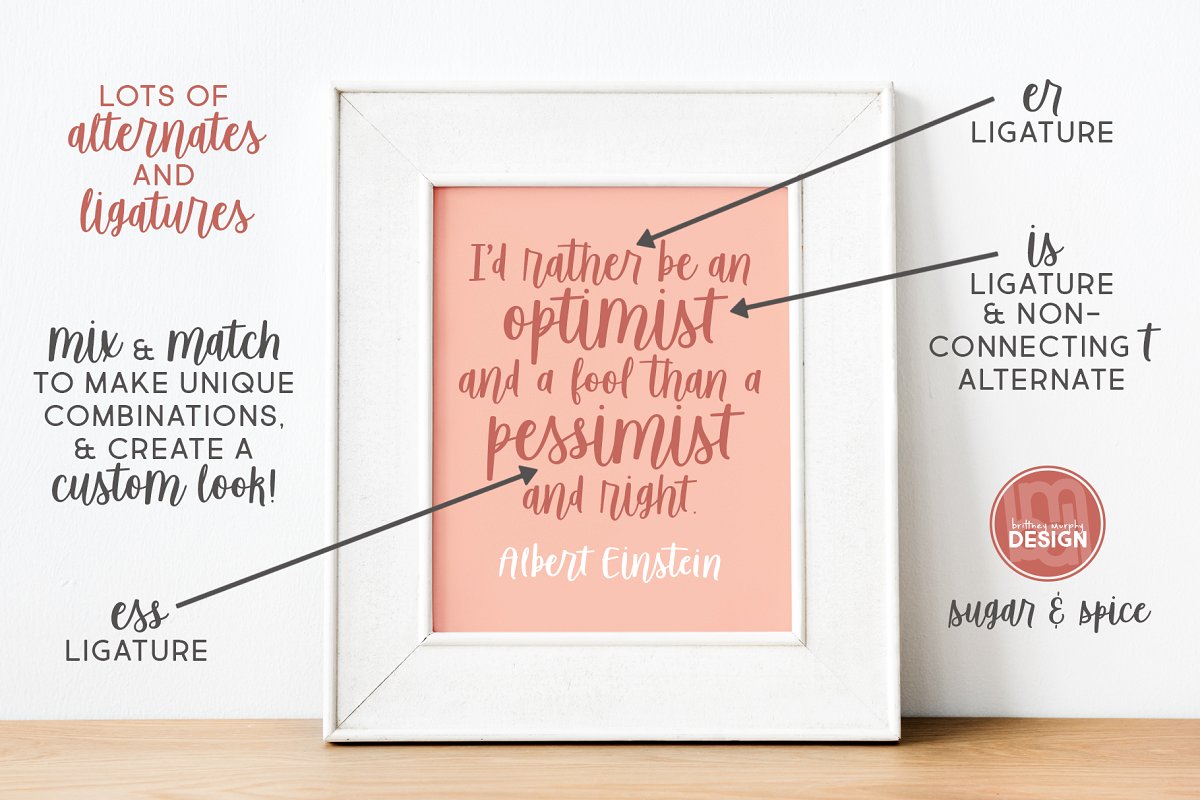 LOTS OF
alternates
AND
ligatures
mix & match
TO MAKE UNIQUE
COMBINATIONS,
& CREATE A
custom look!
ess
LIGATURE
I'd rather be an
optimist
and a fool than a
pessimist
and right.
Albert Einstein
er
LIGATURE
is
LIGATURE
& NON-
CONNECTING t
ALTERNATE
brittney murphy
DESIGN
sugar & spice